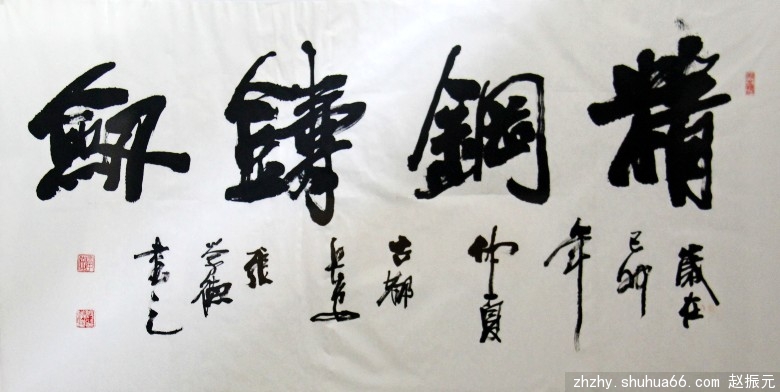 精鋼鑄劔
歲在
己卯
年
仲夏
古都
長安
張
學德
書之
zhzhy.shuhua66.com 赵振元